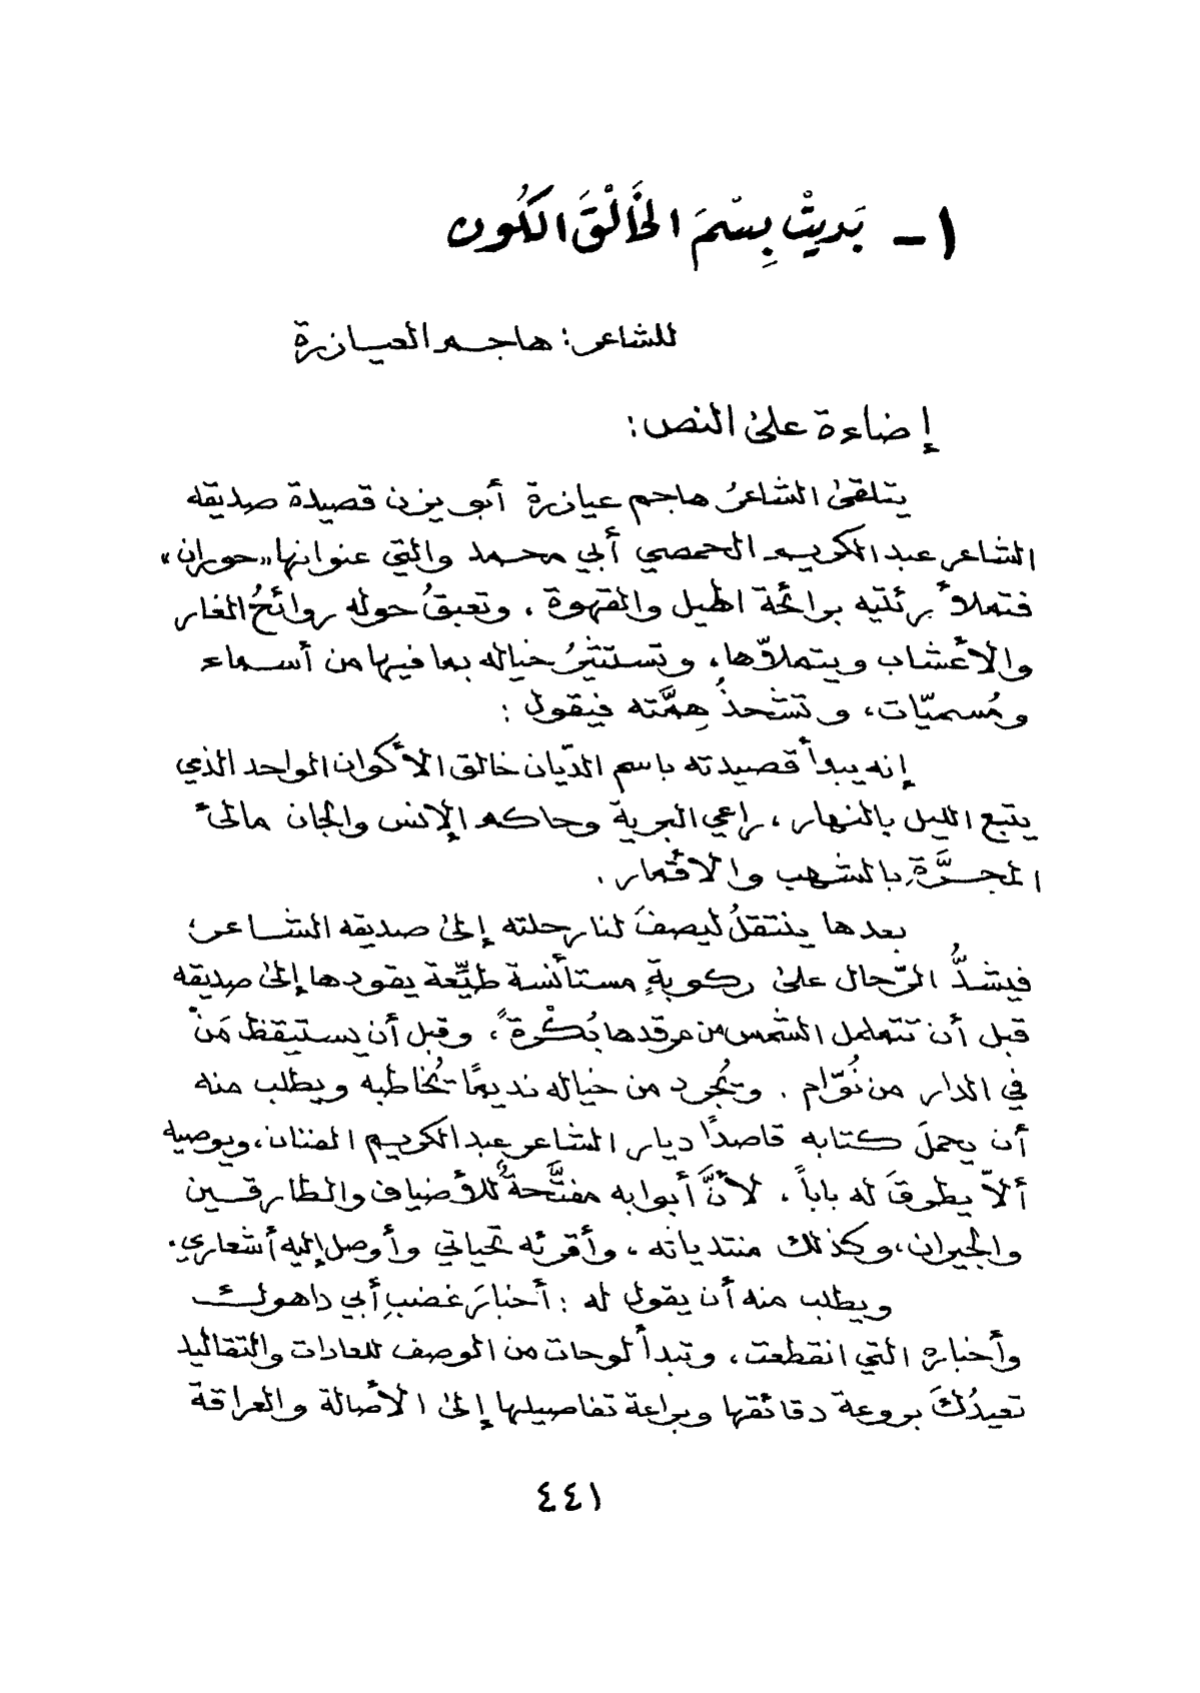 ١ - بَديتْ بِسْمَ الخَالْقَ الكُون
للشاعر: هاجم العيازرة
إضاءة على النص:
يتلقى الشاعرُ هاجم عيازرة أبو يزن قصيدة صديقه
الشاعر عبد الكريم الحمصي أبي محمد والتي عنوانها «حوران»
فتملأ رئتيه برائحة الهيل والقهوة، وتعبقُ حوله روائحُ الغار
والأعشاب ويتملاّها، وتستثيرُ خياله بما فيها من أسماء
ومُسميّات، وتشحذُ هِمَّته فيقول:
إنه يبدأ قصيدته باسم الديّان خالق الأكوان الواحد الذي
يتبع الليل بالنهار، راعي البرية وحاكم الإنس والجان مالئ
المجرَّةِ بالشهب والأقمار.
بعدها ينتقلُ ليصفَ لنا رحلته إلى صديقه الشاعر؛
فيشدُّ الرّحال على ركوبةٍ مستأنسة طيّعة يقودها إلى صديقه
قبل أن تتململ الشمس من مرقدها بُكْرةً، وقبل أن يستيقظ مَنْ
في الدار من نُوّام. ويُجرد من خياله نديمًا يُخاطبه ويطلب منه
أن يحملَ كتابه قاصدًا ديار الشاعر عبد الكريم الفنان، ويوصيه
ألاّ يطرقَ له باباً، لأنَّ أبوابه مفتَّحةٌ للأضياف والطارقين
والجيران، وكذلك منتدياته، وأقرئه تحياتي وأوصل إليه أشعاري.
ويطلب منه أن يقول له: أخبارَ غضبِ أبي داهوك
وأخباره التي انقطعت، وتبدأ لوحات من الوصف للعادات والتقاليد
تعيدُكَ بروعة دقائقها وبراعة تفاصيلها إلى الأصالة والعراقة
٤٤١